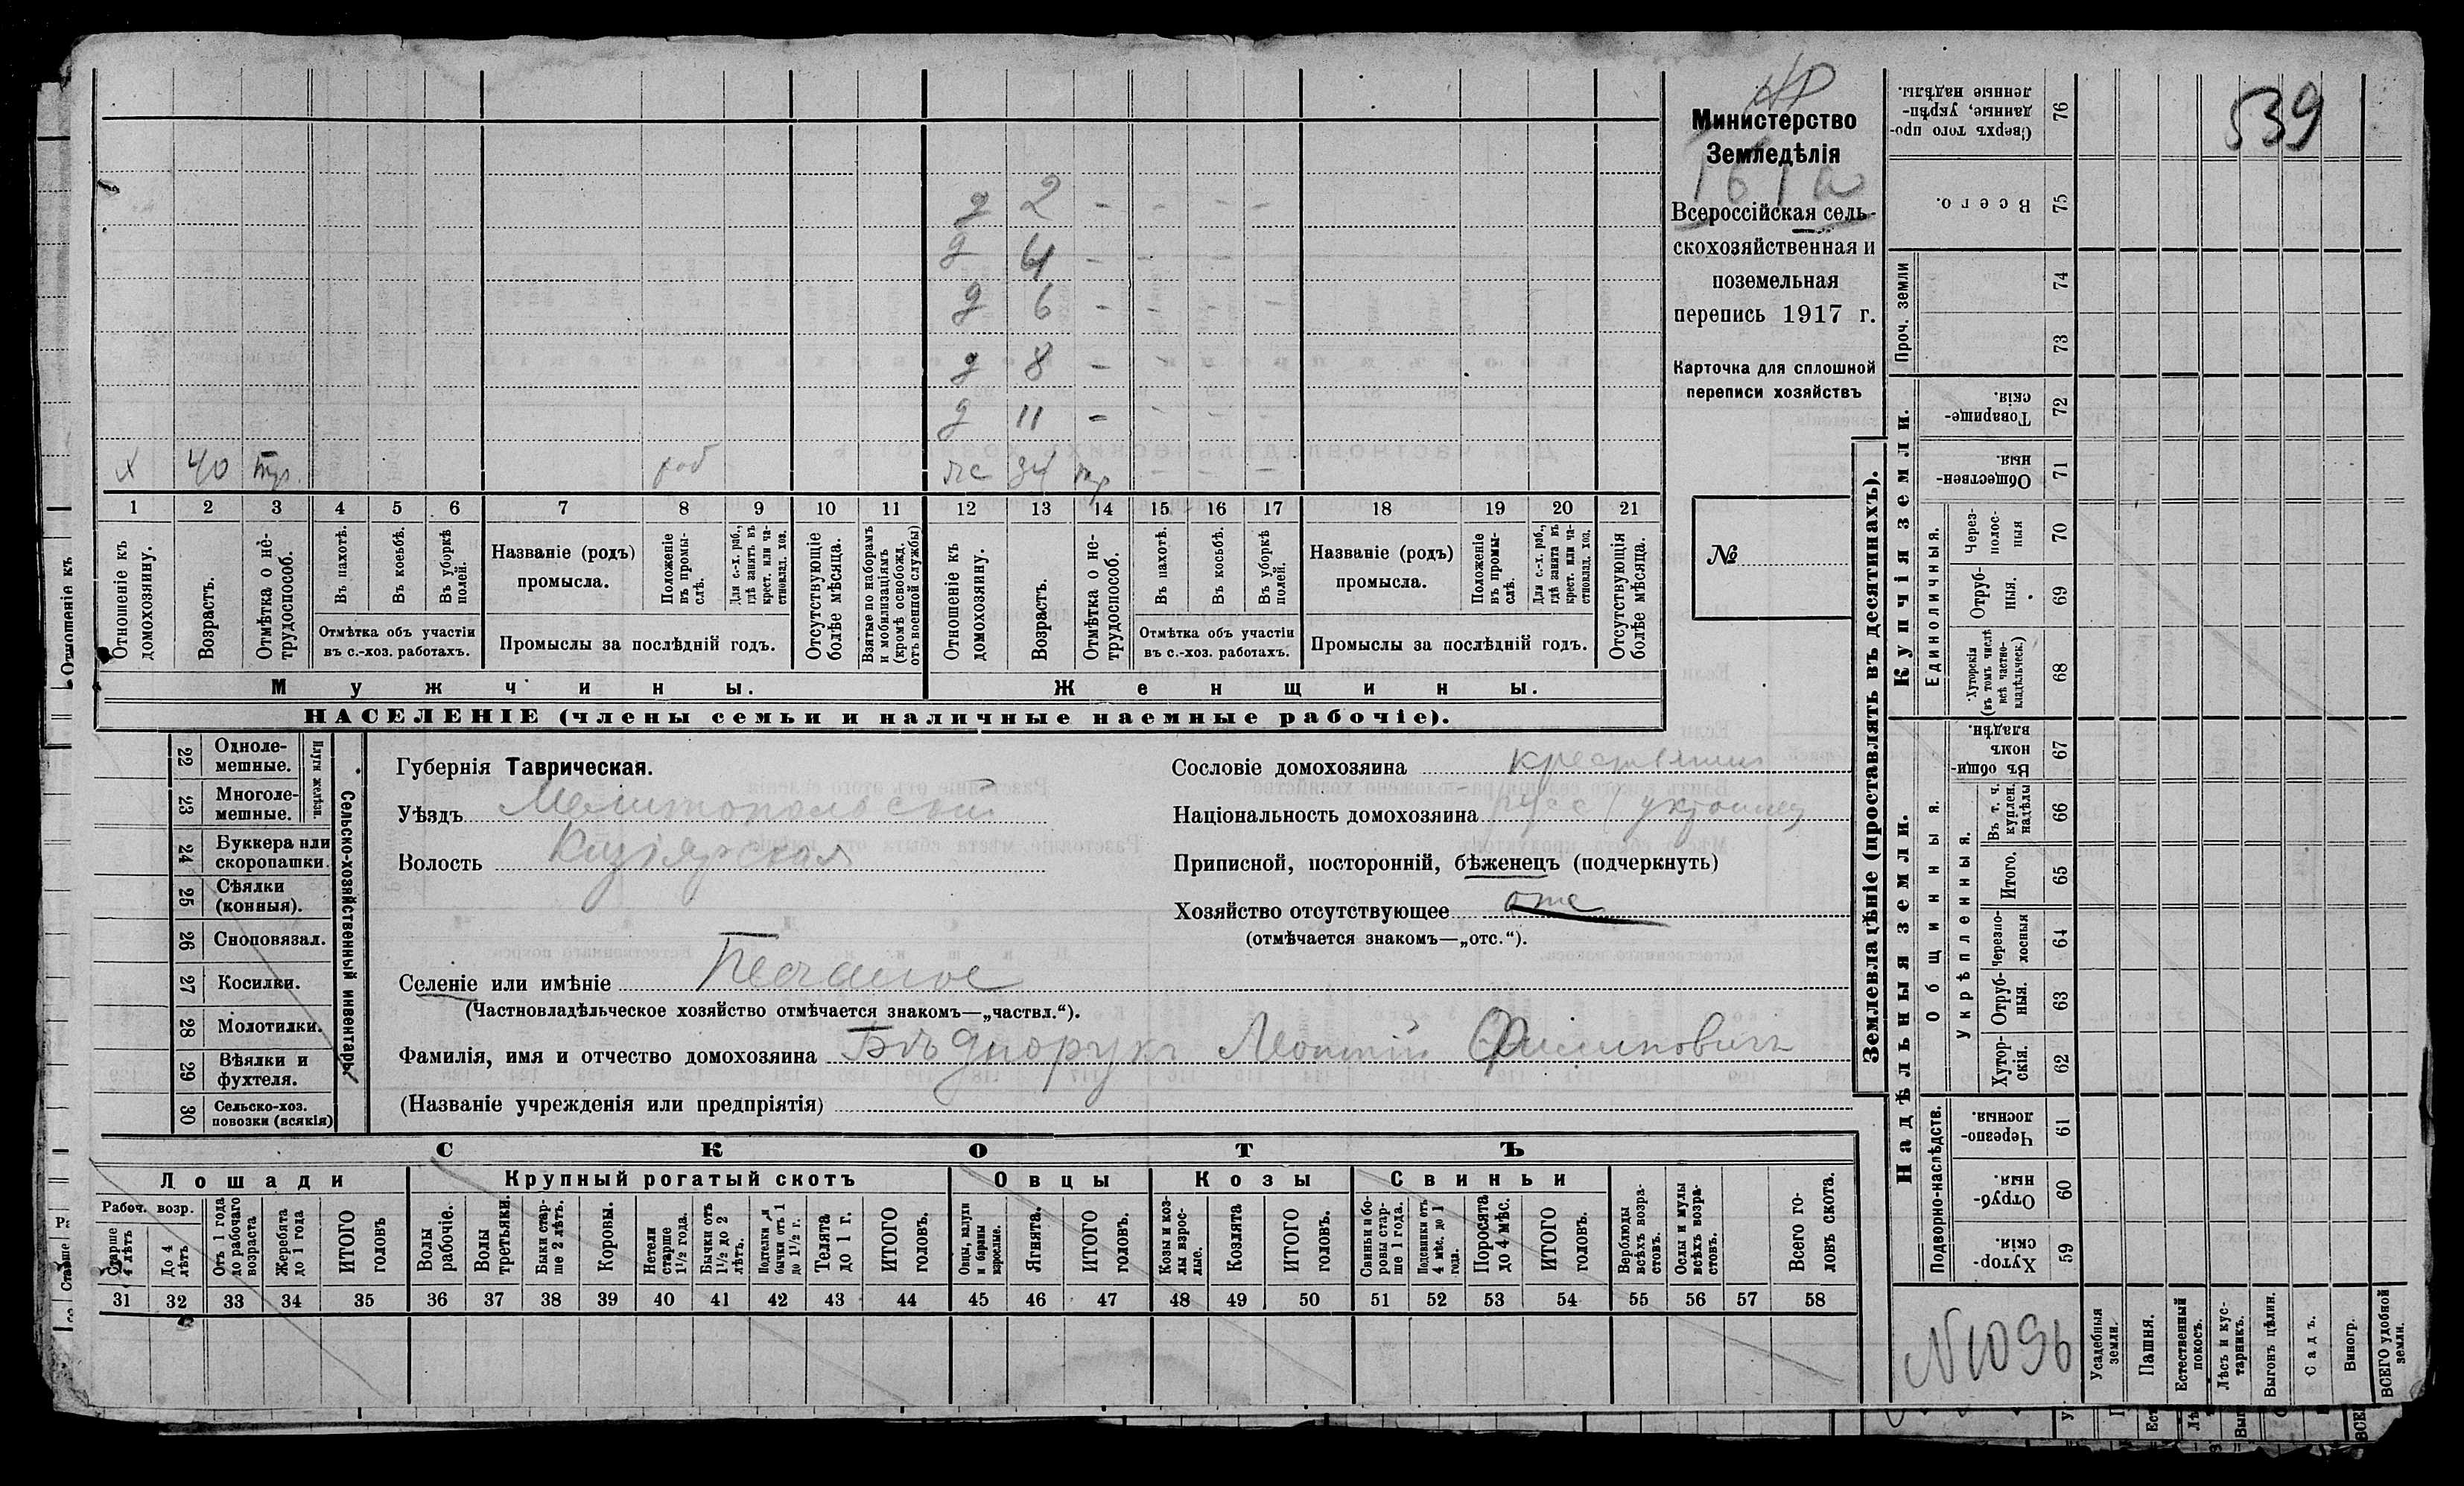 539
Министерство
Земледѣлія
161а
Всероссійская сель-
скохозяйственная и
поземельная
перепись 1917 г.
Карточка для сплошной
переписи хозяйствъ
№
д 2 - - - -
д 4 - - - -
д 6 - - - -
д 8 - -
д 11 - - - -
х 40 тр. раб ж 34 тр - - -
1 2 3 4 5 6 7 8 9 10 11 12 13 14 15 16 17 18 19 20 21
Отношеніе къ домохозяину.
Возрастъ.
Отмѣтка о не-трудоспособ.
Въ пахотѣ.
Въ косьбѣ.
Въ уборкѣ полей.
Отмѣтка объ участіи въ с.-хоз. работахъ.
Названіе (родъ) промысла.
Положеніе въ промы-слѣ.
Для с.-х. раб., гдѣ занятъ въ крест. или ча-стновлад. хоз.
Промыслы за послѣдній годъ.
Отсутствующіе болѣе мѣсяца.
Взятые по наборамъ и мобилизаціямъ (кромѣ освобожд. отъ военной службы)
Отношеніе къ домохозяину.
Возрастъ.
Отмѣтка о не-трудоспособ.
Въ пахотѣ.
Въ косьбѣ.
Въ уборкѣ полей.
Отмѣтка объ участіи въ с.-хоз. работахъ.
Названіе (родъ) промысла.
Положеніе въ промы-слѣ.
Для с.-х. раб., гдѣ занята въ крест. или ча-стновлад. хоз.
Промыслы за послѣдній годъ.
Отсутствующія болѣе мѣсяца.
Мужчины. Женщины.
НАСЕЛЕНІЕ (члены семьи и наличные наемные рабочіе).
Сельско-хозяйственный инвентарь
Плуги желѣзн.
22 Одноле-мешные.
23 Многоле-мешные.
24 Буккера или скоропашки.
25 Сѣялки (конныя).
26 Сноповязал.
27 Косилки.
28 Молотилки.
29 Вѣялки и фухтеля.
30 Сельско-хоз. повозки (всякія)
Губернія Таврическая.
Уѣздъ Мелитопольскій
Волость Кизіярская
Сословіе домохозяина крестьянин
Національность домохозяина русс (украинец
Приписной, посторонній, бѣженецъ (подчеркнуть)
Хозяйство отсутствующее отс
(отмѣчается знакомъ—„отс.“).
Селеніе или имѣніе Песчаное
(Частновладѣльческое хозяйство отмѣчается знакомъ—„частвл.“).
Фамилія, имя и отчество домохозяина Бѣдноруκъ Леонтій Филиповичъ
(Названіе учрежденія или предпріятія)
СКОТЪ
Лошади Крупный рогатый скотъ Овцы Козы Свиньи
Рабоч. возр.
Старше 4 лѣтъ
До 4 лѣтъ
Отъ 1 года до рабочаго возраста
Жеребята до 1 года
ИТОГО головъ
Волы рабочіе.
Волы третьяки.
Быки стар-ше 2 лѣтъ.
Коровы.
Нетели старше 1½ года.
Бычки отъ 1½ до 2 лѣтъ.
Подтелки и бычки отъ 1 до 1½ г.
Телята до 1 г.
ИТОГО головъ.
Овцы, валухи и бараны взрослые.
Ягнята.
ИТОГО головъ.
Козы и коз-лы взрос-лые.
Козлята
ИТОГО головъ.
Свиньи и бо-ровы стар-ше 1 года.
Подсвинки отъ 4 мѣс. до 1 года.
Поросята до 4 мѣс.
ИТОГО головъ.
Верблюды всѣхъ возра-стовъ.
Ослы и мулы всѣхъ возра-стовъ.
Всего го-ловъ скота.
31 32 33 34 35 36 37 38 39 40 41 42 43 44 45 46 47 48 49 50 51 52 53 54 55 56 57 58
Землевладѣніе (проставлять въ десятинахъ).
Купчія земли.
Сверхъ того про-данные, укрѣп-ленные надѣлы. 76
Всего. 75
Проч. земли
74
73
Товарище-скія. 72
Обществен-ныя. 71
Единоличныя.
Через-полос-ныя 70
Отруб-ныя. 69
Хуторскія (въ томъ числѣ всѣ частно-владѣльческ.) 68
Надѣльныя земли.
Общинныя.
Въ общи-номъ владѣн. 67
Укрѣпленныя.
Въ т. ч. куплен. надѣлы 66
Итого. 65
Черезпо-лосныя 64
Отруб-ныя. 63
Хутор-скія. 62
Подворно-наслѣдств.
Черезпо-лосныя. 61
Отруб-ныя. 60
Хутор-скія. 59
N 1096
Усадебныя земли.
Пашня.
Естественный покосъ.
Лѣсъ и кус-тарникъ.
Выгонъ цѣлин.
Садъ.
Виногр.
ВСЕГО удобной земли.